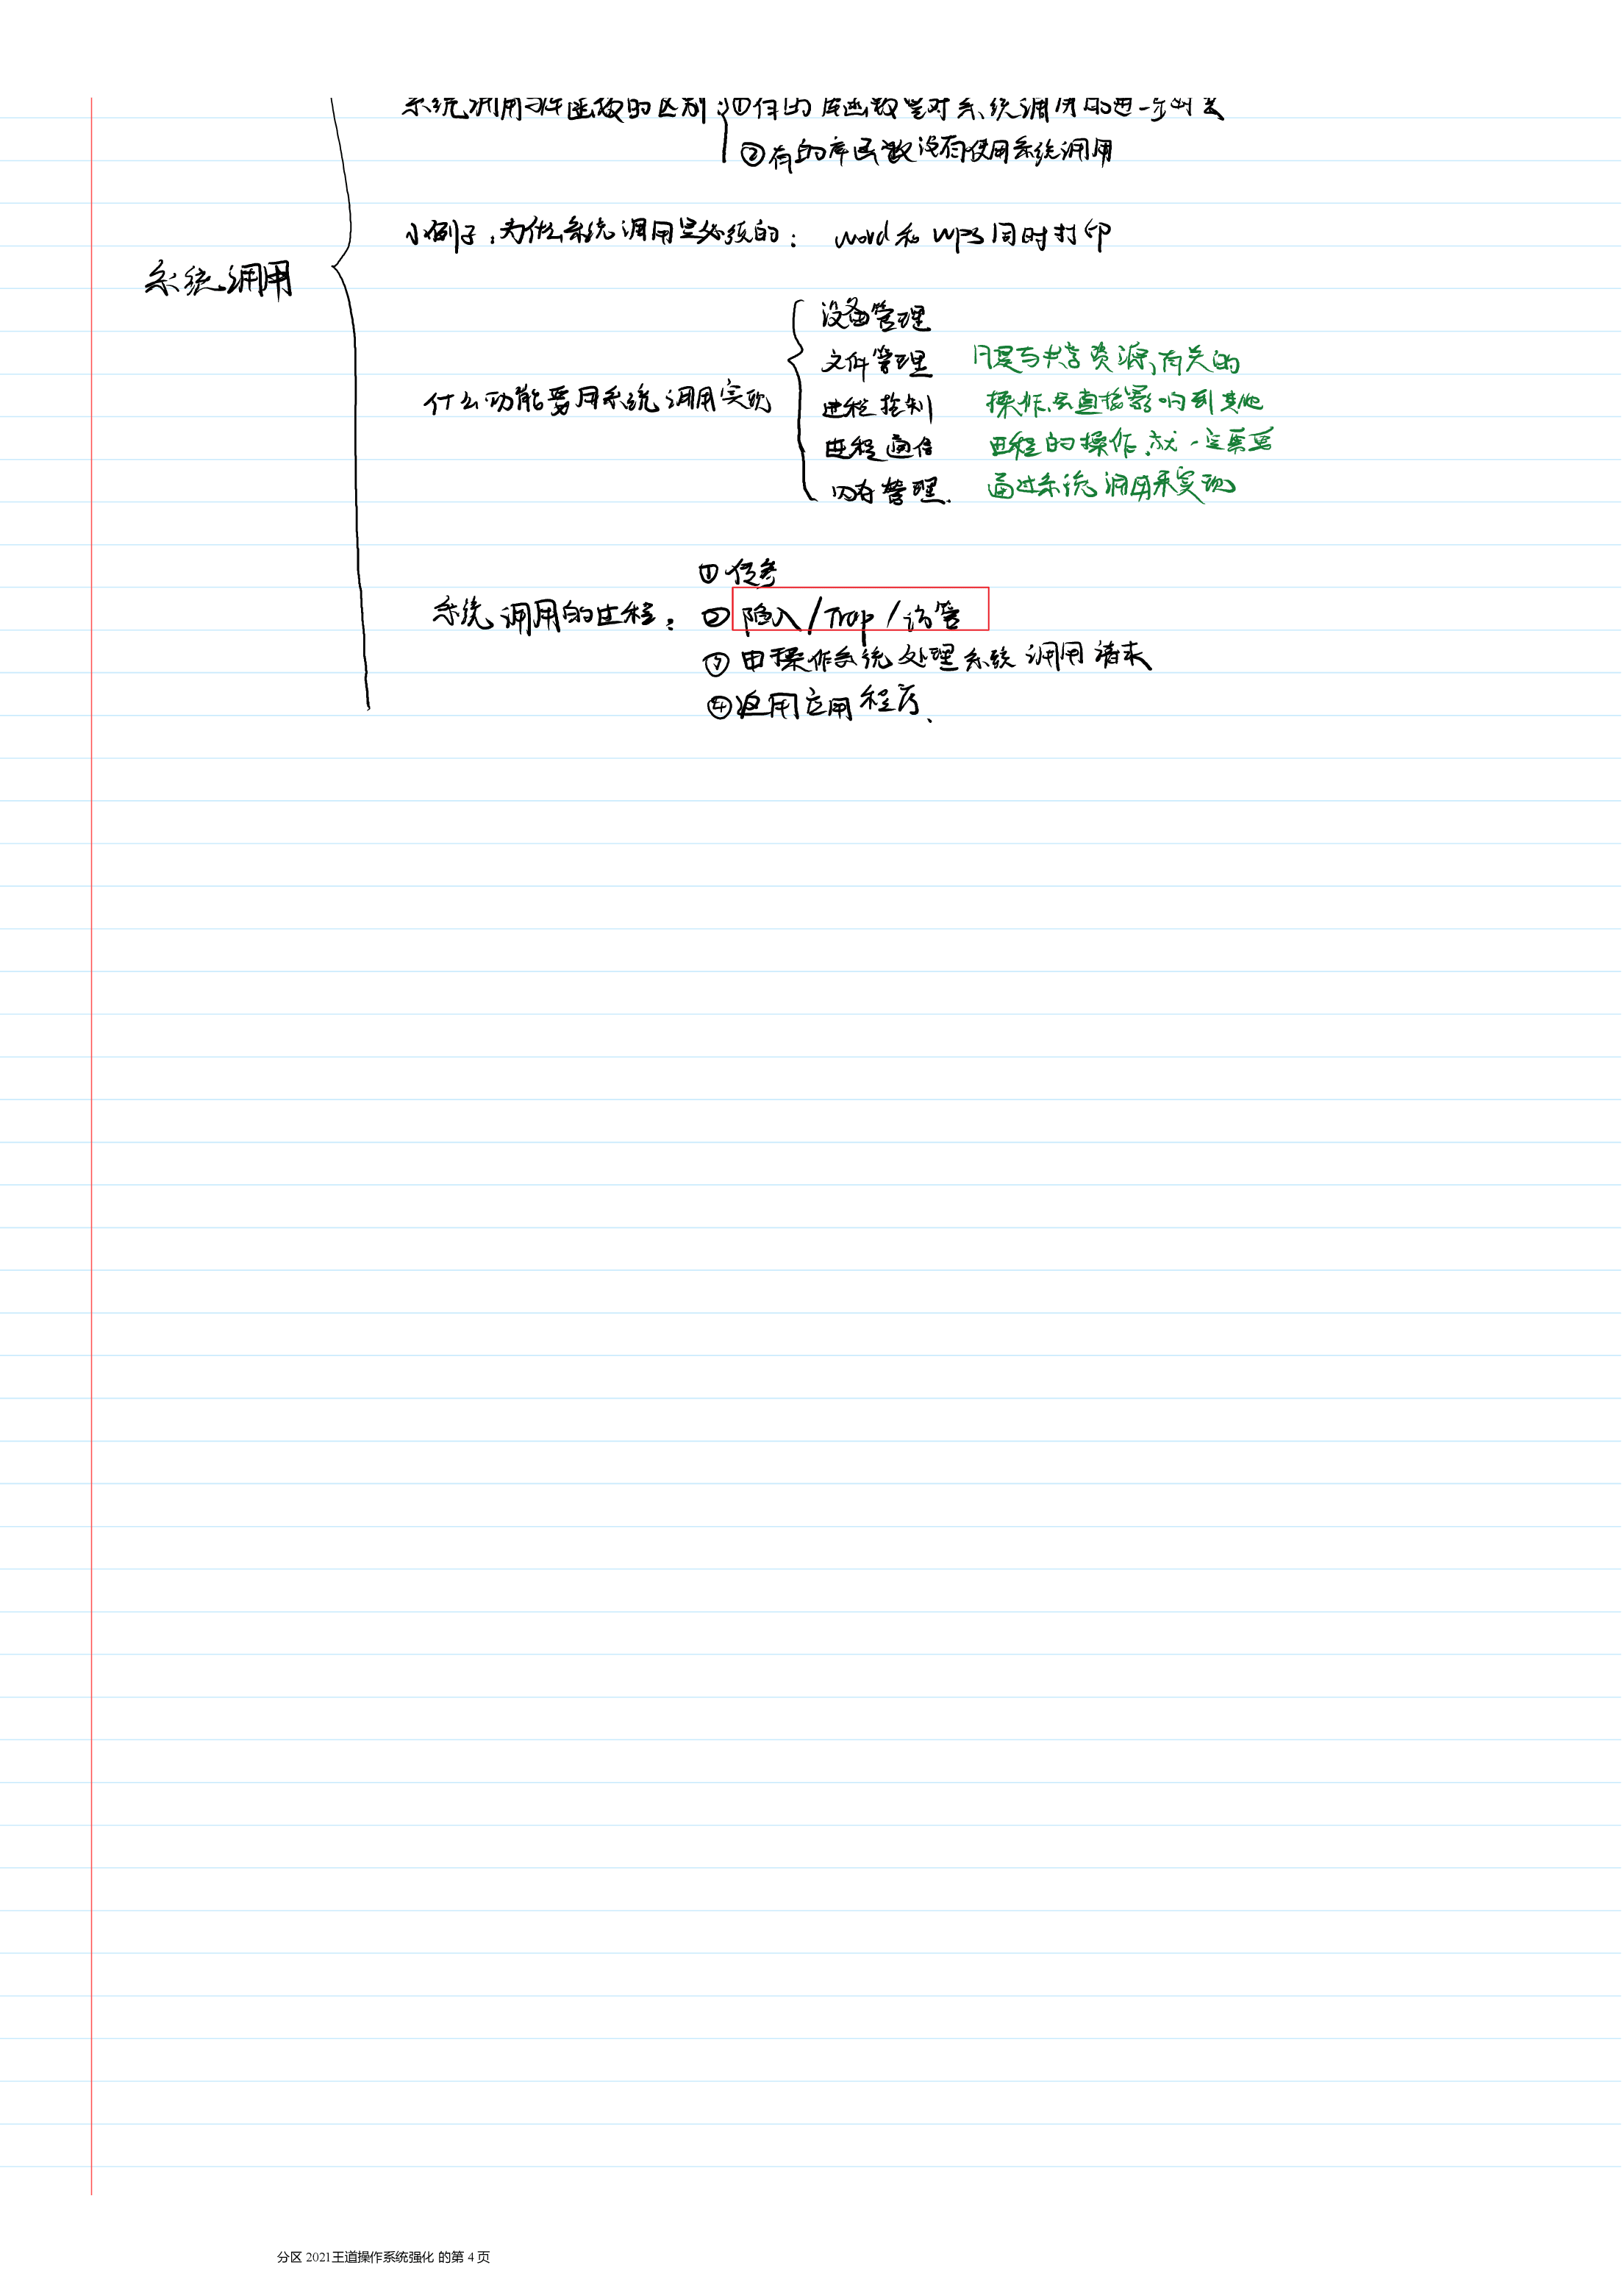 系统调用与库函数的区别 ①有的库函数是对系统调用的进一步封装
②有的库函数没有使用系统调用
小例子:为什么系统调用是必须的: word和WPS同时打印
系统调用
什么功能要用系统调用实现
设备管理
文件管理
进程控制
进程通信
内存管理.
凡是与共享资源有关的
操作、会直接影响到其他
进程的操作,就一定需要
通过系统调用来实现
系统调用的过程:
①传参
②陷入/Trap/访管
③由操作系统处理系统调用请求
④返回应用程序、
分区 2021王道操作系统强化 的第 4 页